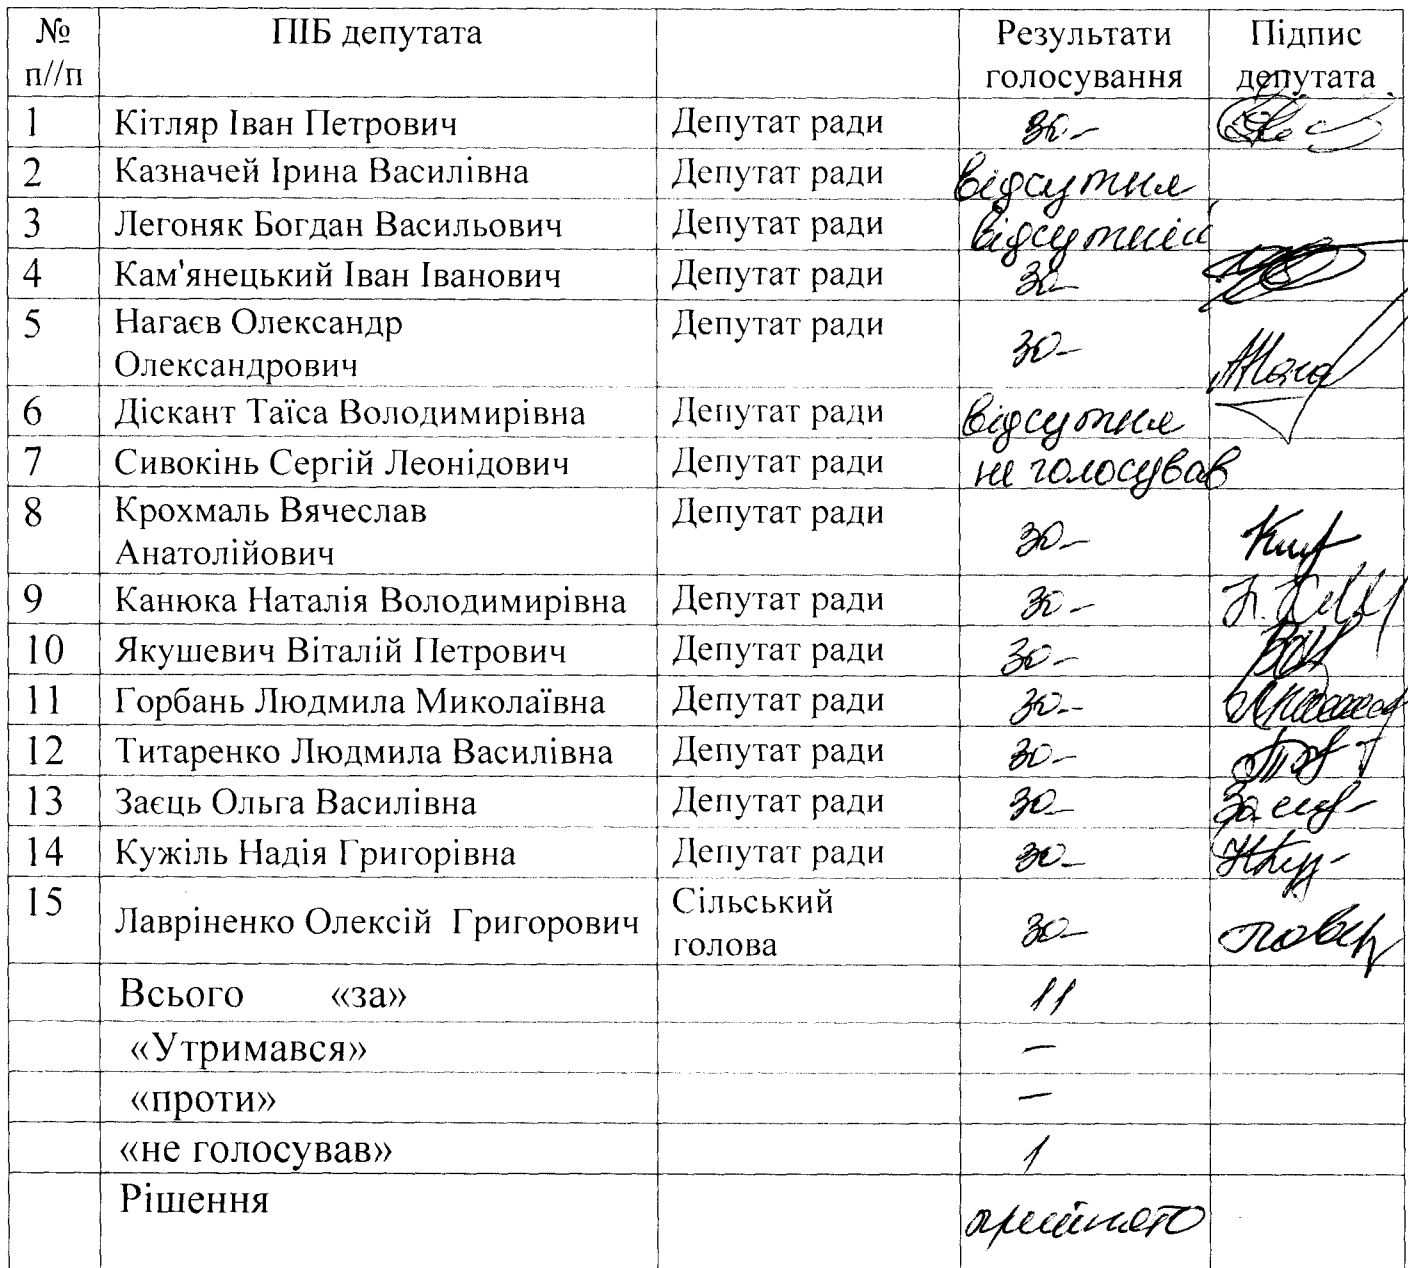 № ПІБ депутата Результати Підпис
п//п голосування депутата
1 Кітляр Іван Петрович Депутат ради за
2 Казначей Ірина Василівна Депутат ради відсутня
3 Легоняк Богдан Васильович Депутат ради відсутній
4 Кам'янецький Іван Іванович Депутат ради за
5 Нагаєв Олександр Депутат ради
Олександрович за
6 Діскант Таїса Володимирівна Депутат ради відсутня
7 Сивокінь Сергій Леонідович Депутат ради не голосував
8 Крохмаль Вячеслав Депутат ради
Анатолійович за
9 Канюка Наталія Володимирівна Депутат ради за
10 Якушевич Віталій Петрович Депутат ради за
11 Горбань Людмила Миколаївна Депутат ради за
12 Титаренко Людмила Василівна Депутат ради за
13 Заєць Ольга Василівна Депутат ради за
14 Кужіль Надія Григорівна Депутат ради за
15 Лавріненко Олексій Григорович Сільський
голова за
Всього «за» 11
«Утримався» –
«проти» –
«не голосував» 1
Рішення прийнято